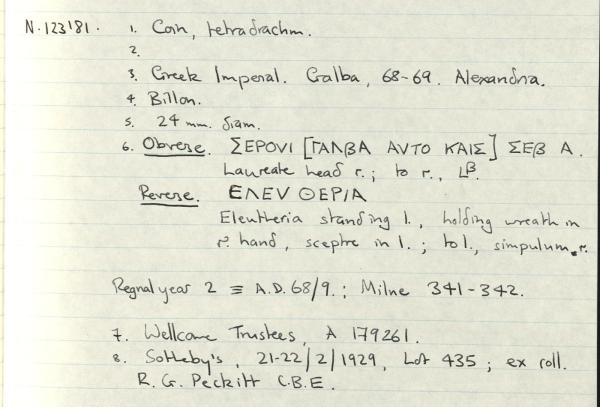 N.123'81. 1. Coin, tetradrachm.
2.
3. Greek Imperial. Galba, 68-69. Alexandria.
4. Billon.
5. 24 mm. diam.
6. Obverse. ΣΕΡΟVΙ [ΓΑΛΒΑ ΑVΤΟ ΚΑΙΣ] ΣΕΒ Α.
Laureate head r.; to r., Lβ.
Reverse. ΕΛΕV ΘΕΡΙΑ
Eleutheria standing l., holding wreath in
r. hand, sceptre in l.; to l., simpulum. r.
Regnal year 2 ≡ A.D. 68/9.; Milne 341-342.
7. Wellcome Trustees, A 179261.
8. Sotheby's, 21-22/2/1929, Lot 435; ex coll.
R. G. Peckitt C.B.E.